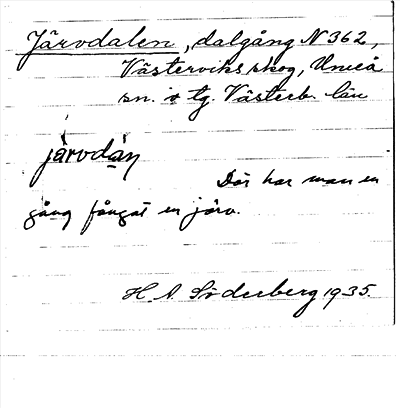 Järvdalen, dalgång N 362,
Västerviks skog, Umeå
sn. o tg. Västerb. län
järvdàṇ
Där har man en
gång fångat en järv.
H. A. Söderberg 1935.